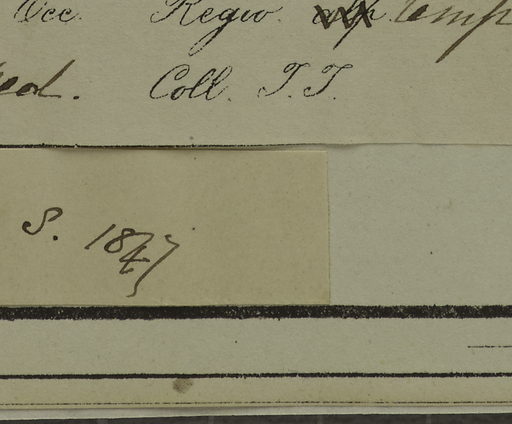 Occ. Regio alp. temp
Coll. T. T.
S. 1847